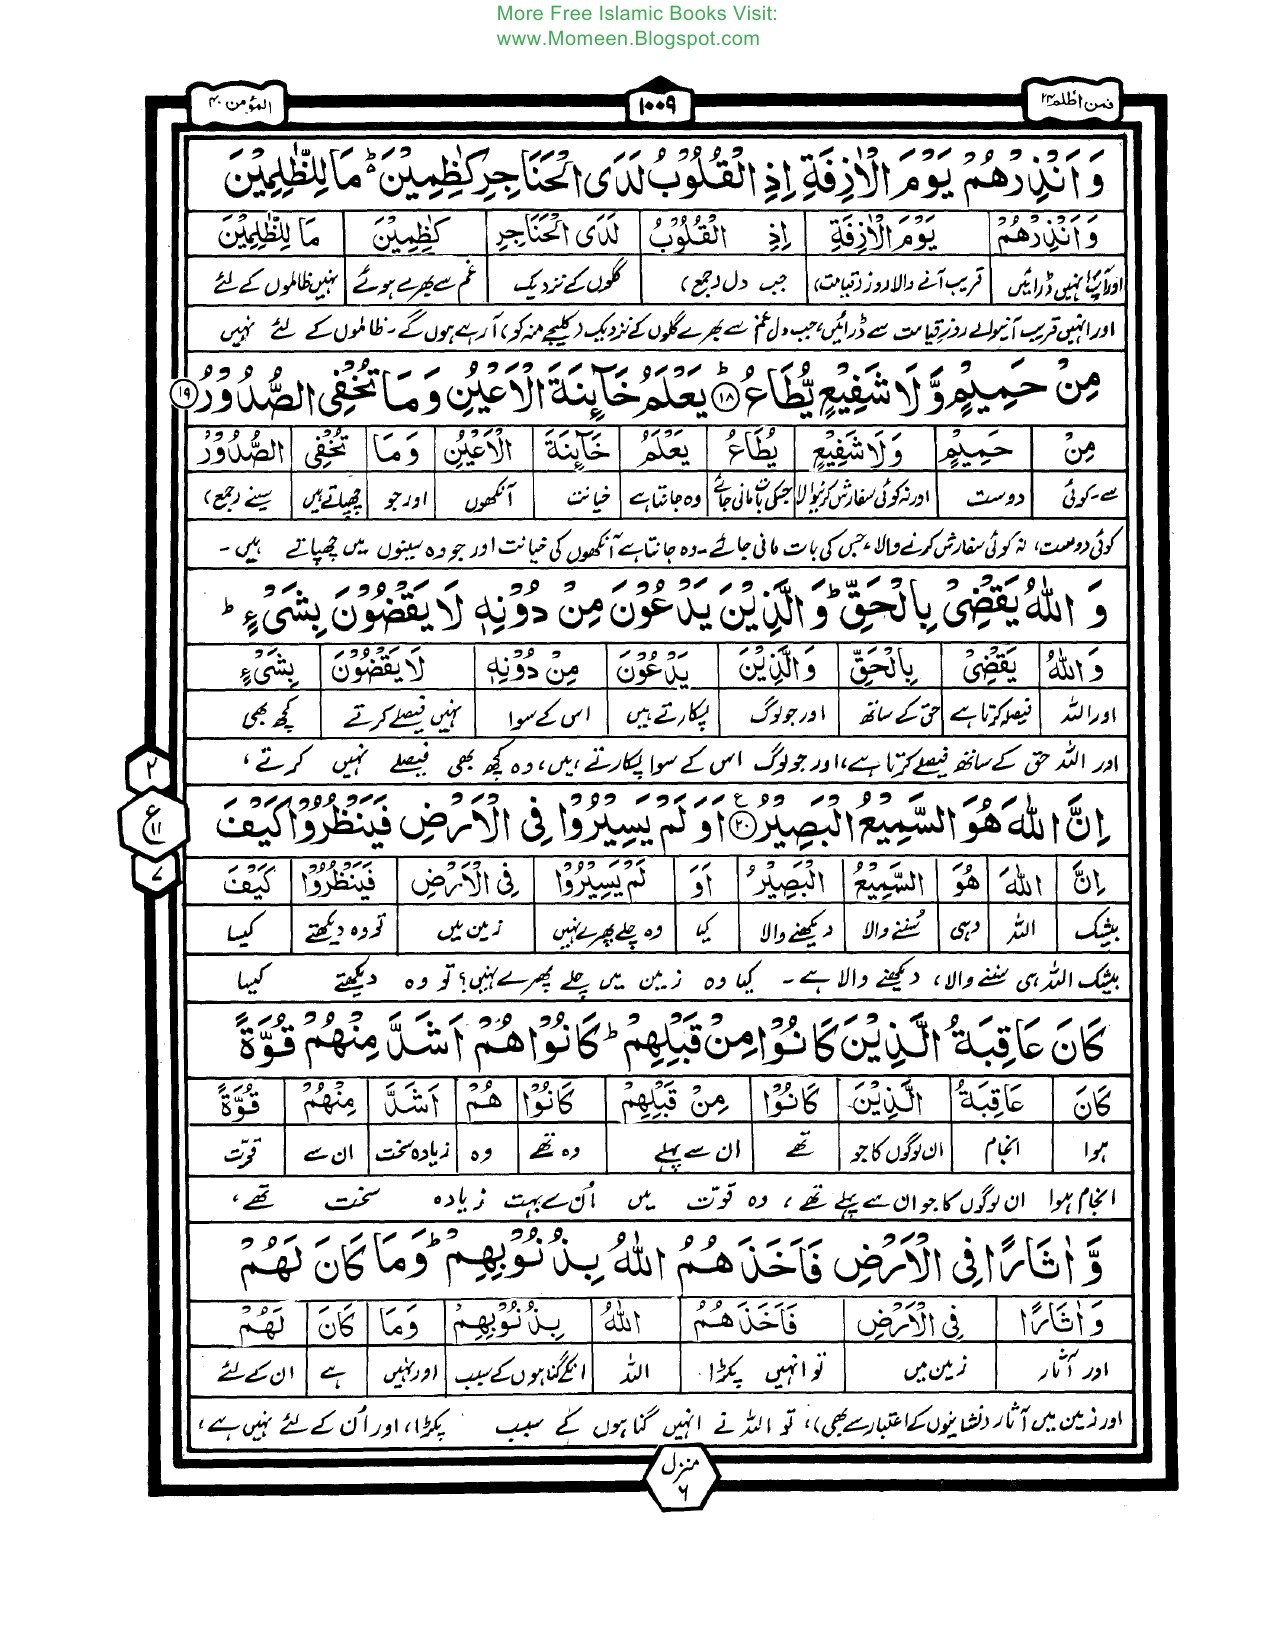 More Free Islamic Books Visit:
www.Momeen.Blogspot.com
فمن اظلم ۲۴ ۱۰۰۹ المؤمن ۴۰
وَاَنْذِرْهُمْ يَوْمَ الْاٰزِفَةِ اِذِ الْقُلُوْبُ لَدَى الْحَنَاجِرِ كٰظِمِيْنَ ؕ مَا لِلظّٰلِمِيْنَ
وَاَنْذِرْهُمْ يَوْمَ الْاٰزِفَةِ اِذِ الْقُلُوْبُ لَدَى الْحَنَاجِرِ كٰظِمِيْنَ مَا لِلظّٰلِمِيْنَ
اور آپ انہیں ڈرائیں قریب آنے والا روز (قیامت) جب دل (جمع) گلوں کے نزدیک غم سے بھرے ہوئے نہیں ظالموں کے لئے
اور انہیں قریب آنیوالے روز قیامت سے ڈرائیں، جب دل غم سے بھرے گلوں کے نزدیک (کلیجے منہ کو) آرہے ہوں گے۔ ظالموں کے لئے نہیں
مِنْ حَمِيْمٍ وَّلَا شَفِيْعٍ يُّطَاعُ ؕ ۱۸ يَعْلَمُ خَآئِنَةَ الْاَعْيُنِ وَمَا تُخْفِى الصُّدُوْرُ ۱۹
مِنْ حَمِيْمٍ وَلَا شَفِيْعٍ يُطَاعُ يَعْلَمُ خَآئِنَةَ الْاَعْيُنِ وَمَا تُخْفِى الصُّدُوْرُ
سے۔کوئی دوست اور نہ کوئی سفارش کرنیوالا جسکی بات مانی جائے وہ جانتا ہے خیانت آنکھوں اور جو چھپاتے ہیں سینے (جمع)
کوئی دوست، نہ کوئی سفارش کرنے والا، جس کی بات مانی جائے۔ وہ جانتا ہے آنکھوں کی خیانت اور جو وہ سینوں میں چھپاتے ہیں۔
وَاللّٰهُ يَقْضِىْ بِالْحَقِّ ؕ وَالَّذِيْنَ يَدْعُوْنَ مِنْ دُوْنِهٖ لَا يَقْضُوْنَ بِشَىْءٍ ؕ
وَاللّٰهُ يَقْضِىْ بِالْحَقِّ وَالَّذِيْنَ يَدْعُوْنَ مِنْ دُوْنِهٖ لَا يَقْضُوْنَ بِشَىْءٍ
اور اللہ فیصلہ کرتا ہے حق کے ساتھ اور جو لوگ پکارتے ہیں اس کے سوا نہیں فیصلے کرتے کچھ بھی
اور اللہ حق کے ساتھ فیصلے کرتا ہے، اور جو لوگ اس کے سوا پکارتے ہیں، وہ کچھ بھی فیصلے نہیں کرتے،
۲
ع
۱۱
۷
اِنَّ اللّٰهَ هُوَ السَّمِيْعُ الْبَصِيْرُ ع ۲۰ اَوَلَمْ يَسِيْرُوْا فِى الْاَرْضِ فَيَنْظُرُوْا كَيْفَ
اِنَّ اللّٰهَ هُوَ السَّمِيْعُ الْبَصِيْرُ اَوَ لَمْ يَسِيْرُوْا فِى الْاَرْضِ فَيَنْظُرُوْا كَيْفَ
بیشک اللہ وہی سننے والا دیکھنے والا کیا وہ چلے پھرے نہیں زمین میں تو وہ دیکھتے کیسا
بیشک اللہ ہی سننے والا، دیکھنے والا ہے۔ کیا وہ زمین میں چلے پھرے نہیں؟ تو وہ دیکھتے کیسا
كَانَ عَاقِبَةُ الَّذِيْنَ كَانُوْا مِنْ قَبْلِهِمْ ؕ كَانُوْا هُمْ اَشَدَّ مِنْهُمْ قُوَّةً
كَانَ عَاقِبَةُ الَّذِيْنَ كَانُوْا مِنْ قَبْلِهِمْ كَانُوْا هُمْ اَشَدَّ مِنْهُمْ قُوَّةً
ہوا انجام ان لوگوں کا جو تھے ان سے پہلے وہ تھے وہ زیادہ سخت ان سے قوت
انجام ہوا ان لوگوں کا جو ان سے پہلے تھے، وہ قوت میں اُن سے بہت زیادہ سخت تھے،
وَّاٰثَارًا فِى الْاَرْضِ فَاَخَذَهُمُ اللّٰهُ بِذُنُوْبِهِمْ ؕ وَمَا كَانَ لَهُمْ
وَاٰثَارًا فِى الْاَرْضِ فَاَخَذَهُمُ اللّٰهُ بِذُنُوْبِهِمْ وَمَا كَانَ لَهُمْ
اور آثار زمین میں تو انہیں پکڑا اللہ انکے گناہوں کے سبب اور نہیں ہے ان کے لئے
اور زمین میں آثار (نشانیوں کے اعتبار سے بھی)، تو اللہ نے انہیں گناہوں کے سبب پکڑا، اور اُن کے لئے نہیں ہے،
منزل ۶